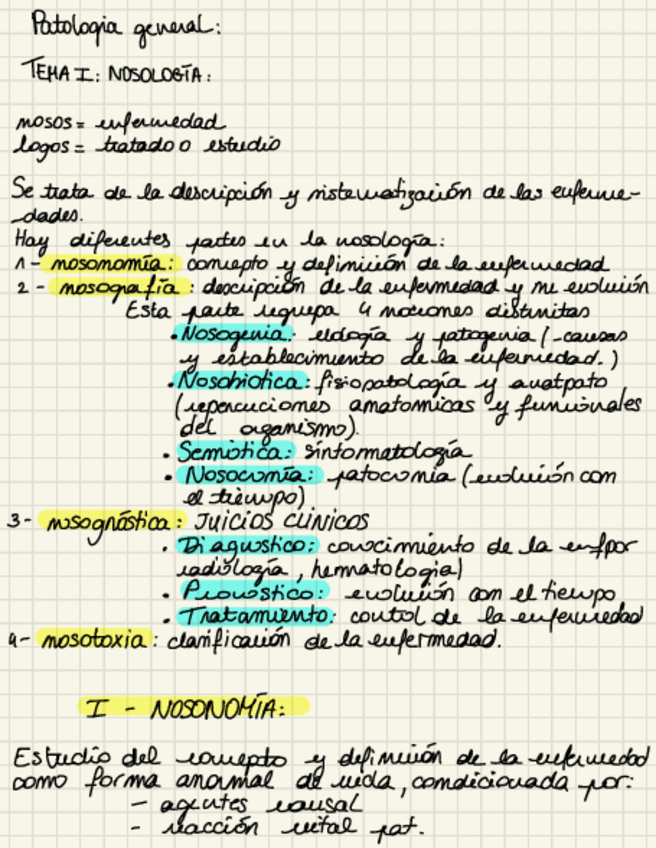 Patologia general:
TEMA I: NOSOLOGÍA:
nosos = enfermedad
logos = tratado o estudio
Se trata de la descripción y sistematización de las enferme-
-dades.
Hay diferentes partes en la nosología:
1- nosonomía: concepto y definición de la enfermedad
2 - nosografía: descripción de la enfermedad y su evolución
Esta parte agrupa 4 nociones distinitas
• Nosogenia: etiología y patogenia (-causas
y establecimiento de la enfermedad.)
• Nosobiotica: fisiopatología y anatpato
(repercuciones anatomicas y funcionales
del organismo).
• Semiótica: sintormatología
• Nosocromía: patocromia (evolución con
el tiempo)
3- nosognóstica: JUICIOS CLÍNICOS
• Diagnostico: conocimiento de la enf por
radiología, hematologia)
• Pronostico: evolución con el tiempo
• Tratamiento: control de la enfermedad
4- nosotoxia: clarificación de la enfermedad.
I - NOSONOMÍA:
Estudio del concepto y definición de la enfermedad
como forma anormal de vida, condicionada por:
- agentes causal
- reacción vital pat.